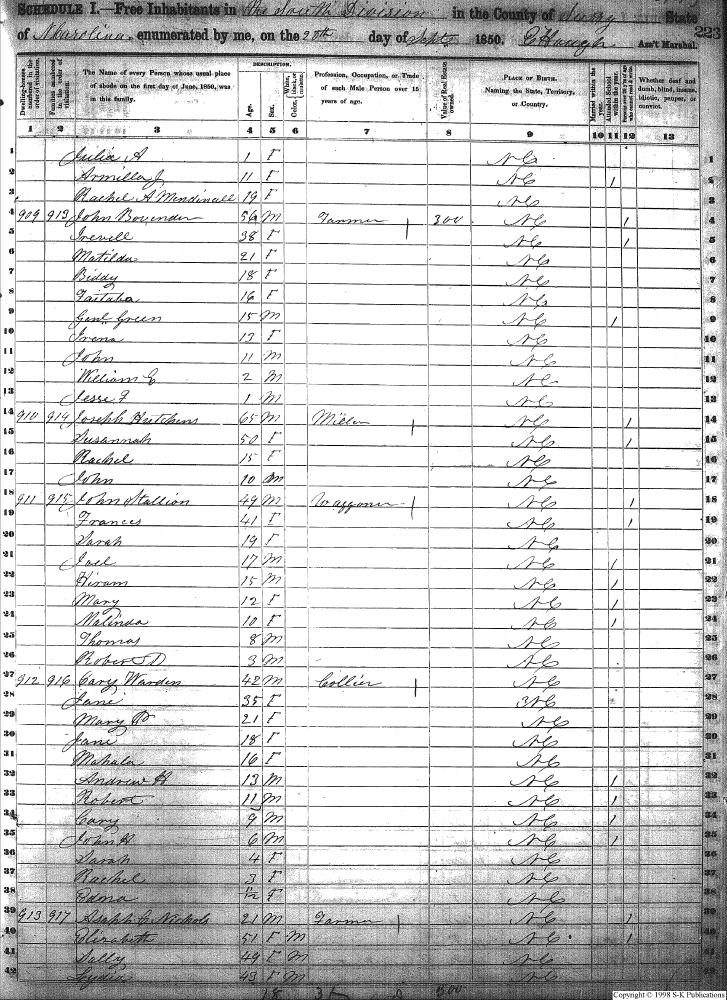 SCHEDULE I.—Free Inhabitants in the South Division in the County of Surry State
of N Carolina enumerated by me, on the 20th day of Sept 1850. Ass't Marshal. 223
Dwelling-houses numbered in the order of visitation.
Families numbered in the order of visitation.
The Name of every Person whose usual place of abode on the first day of June, 1850, was in this family.
DESCRIPTION.
Age.
Sex.
White, black, or mulatto.
Color,
Profession, Occupation, or Trade of each Male Person over 15 years of age.
Value of Real Estate owned.
PLACE OF BIRTH. Naming the State, Territory, or Country.
Married within the year.
Attended School within the year.
Persons over 20 y'rs of age who cannot read & write.
Whether deaf and dumb, blind, insane, idiotic, pauper, or convict.
1 2 3 4 5 6 7 8 9 10 11 12 13
1 Julia A 1 F NC 1
2 Armilla J 11 F NC / 2
3 Rachel A Mendinall 19 F NC 3
4 909 913 John Bovender 56 M Farmer 300 NC / 4
5 38 F NC / 5
6 Matilda 21 F NC 6
7 Biddy 18 F NC 7
8 16 F NC 8
9 Genl Green 15 M NC / 9
10 Irena 13 F NC 10
11 John 11 M NC 11
12 William E 2 M NC 12
13 Jesse F 1 M NC 13
14 910 914 Joseph Hutchens 65 M Miller NC / 14
15 Susannah 50 F NC / 15
16 Rachel 15 F NC 16
17 John 10 M NC 17
18 911 915 John Stallion 49 M Waggoner NC / 18
19 Frances 41 F NC / 19
20 Sarah 19 F NC 20
21 Joel 17 M NC / 21
22 Hiram 15 M NC / 22
23 Mary 12 F NC / 23
24 Malinda 10 F NC / 24
25 Thomas 8 M NC 25
26 Robert D 3 M NC 26
27 912 916 Cary Warden 42 M Collier NC 27
28 Jane 35 F NC 28
29 Mary P 21 F NC 29
30 Jane 18 F NC 30
31 Mahala 16 F NC 31
32 Andrew H 13 M NC / 32
33 Robert 11 M NC / 33
34 Cary 9 M NC / 34
35 John H 6 M NC / 35
36 Sarah 4 F NC 36
37 Rachel 3 F NC 37
38 Edna 1/2 F NC 38
39 913 917 Nichols 21 M Farmer NC / 39
40 Elizabeth 51 F M NC / 40
41 Sally 49 F M NC 41
42 Lydia 43 F M NC 42
300
Copyright © 1998 S-K Publications